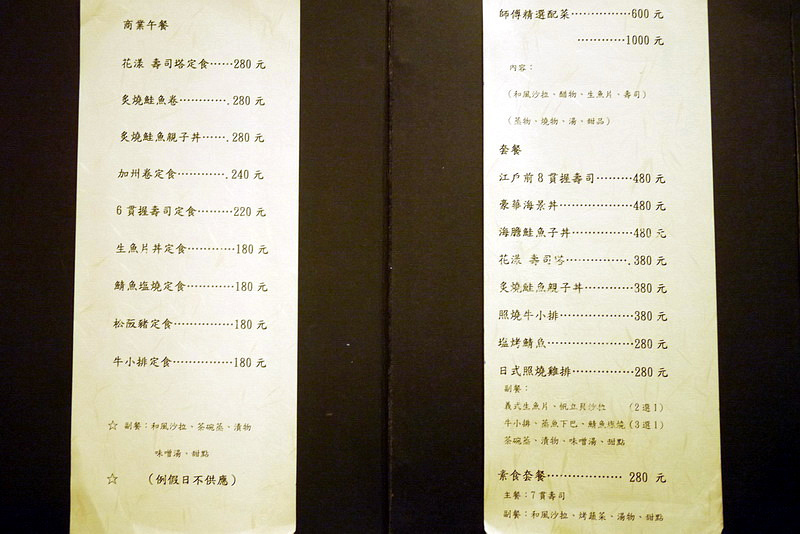 商業午餐
花漾 壽司塔定食⋯⋯280 元
炙燒鮭魚卷⋯⋯⋯⋯.280 元
炙燒鮭魚親子丼⋯⋯.280 元
加州卷定食⋯⋯⋯⋯.240 元
6 貫握壽司定食⋯⋯⋯220 元
生魚片丼定食⋯⋯⋯⋯180 元
鯖魚塩燒定食⋯⋯⋯⋯180 元
松阪豬定食⋯⋯⋯⋯⋯180 元
牛小排定食⋯⋯⋯⋯⋯180 元
☆ 副餐：和風沙拉、茶碗蒸、漬物
味噌湯、甜點
☆ （例假日不供應）
師傅精選配菜⋯⋯⋯⋯⋯600 元
⋯⋯⋯⋯1000 元
內容：
（和風沙拉、醋物、生魚片、壽司）
（蒸物、燒物、湯、甜品）
套餐
江戶前 8 貫握壽司⋯⋯⋯480 元
豪華海景丼⋯⋯⋯⋯⋯480 元
海膽鮭魚子丼⋯⋯⋯⋯⋯480 元
花漾 壽司塔⋯⋯⋯⋯⋯.380 元
炙燒鮭魚親子丼⋯⋯⋯⋯380 元
照燒牛小排⋯⋯⋯⋯⋯⋯380 元
塩烤鯖魚⋯⋯⋯⋯⋯⋯⋯280 元
日式照燒雞排⋯⋯⋯⋯⋯280 元
副餐：
義式生魚片、帆立貝沙拉 （2 選 1）
牛小排、蒸魚下巴、鯖魚塩燒（3 選 1）
茶碗蒸、漬物、味噌湯、甜點
素食套餐⋯⋯⋯⋯⋯⋯ 280 元
主餐：7 貫壽司
副餐：和風沙拉、烤蔬菜、湯物、甜點